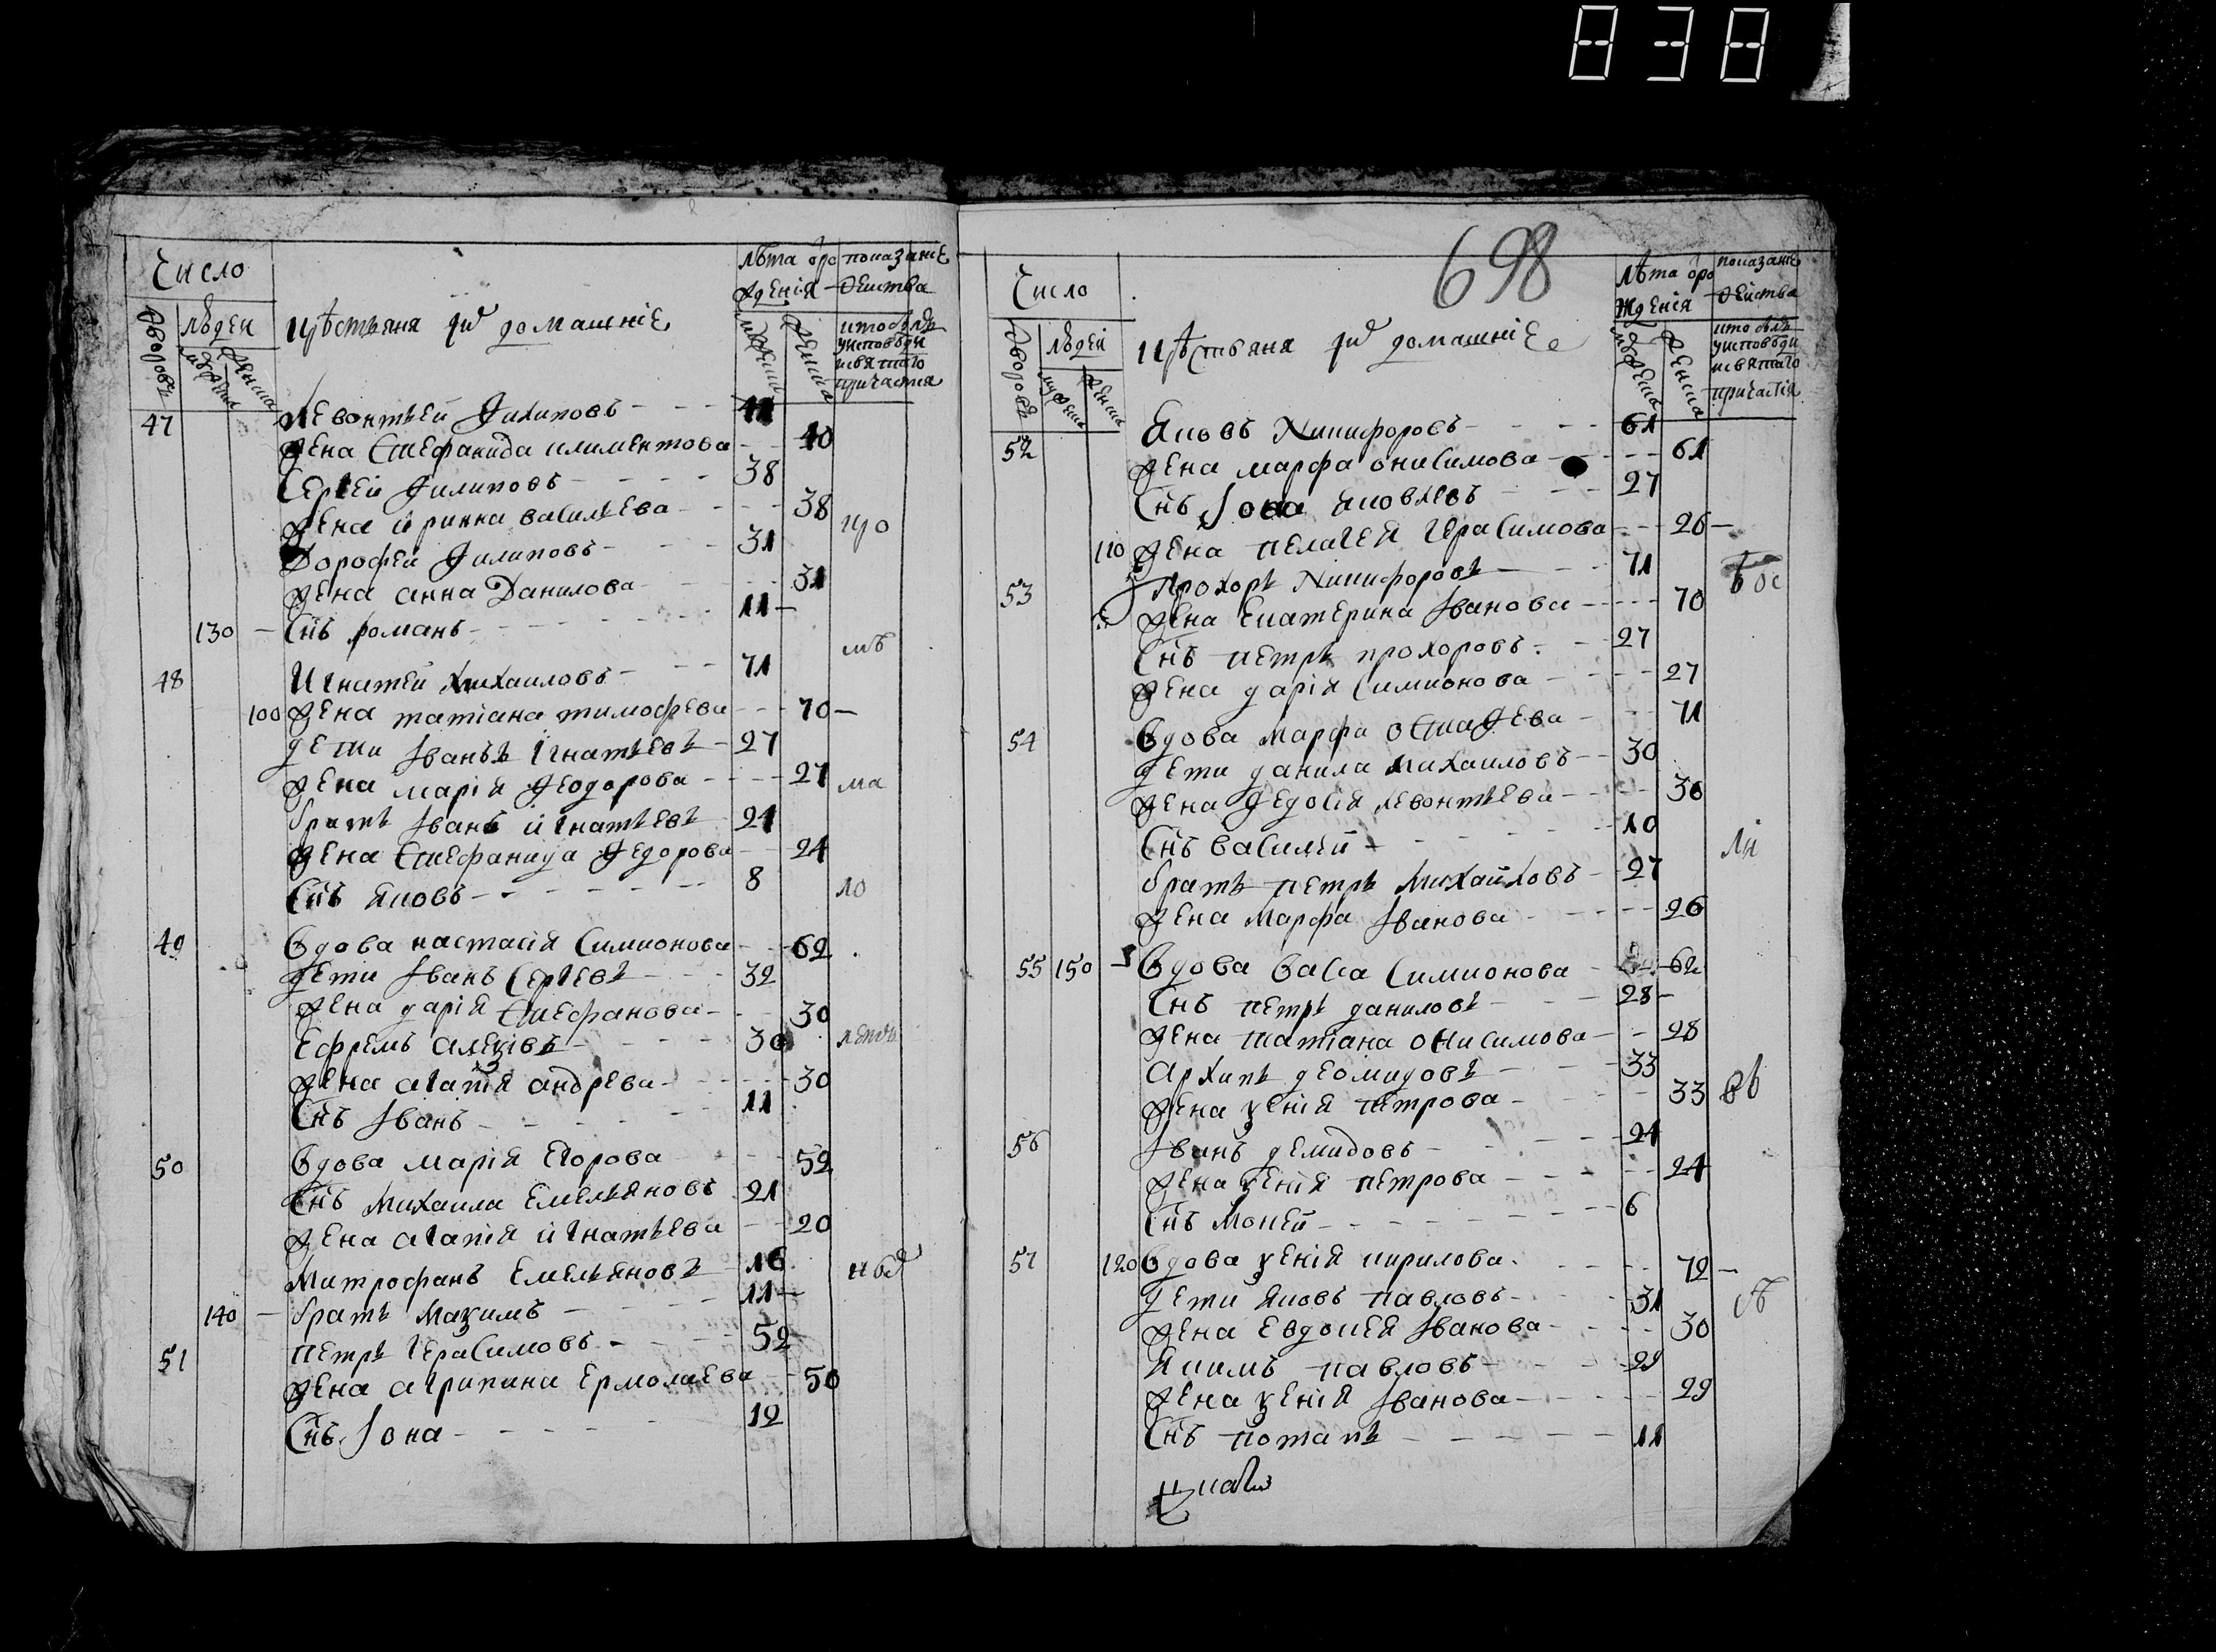 838
Число
лѣта ѿро показание
ждения действа
дворовъ
людеи
мужеска
женска
крѣстьяня их домашние
мужеска
женска
кто былъ
у исповѣди
и святаго
причастия
47 Левонтьей Филиповъ - - - 41
жена Стефанида клименътова - - 40
Сергей Филиповъ - - - - 38
жена иринна василиева - - - 38
про
Дорофей Филиповъ - - - - 31
жена анна Данилова - - - 31
130 - Снъ романъ - - - - - 11 -
мъ
48 Игнатей Михаиловъ - - - 71
100 жена татиана тимофева - - - 70 -
дети Иванъ Игнатьевъ - 27
жена мария Феодорова - - - - 27
ма
братъ Иванъ игнатьевъ 24
жена Стефанида Федорова - - 24
Снъ яковъ - - - - - - - 8
ло
49 Вдова настасия Симионова - - 62
дети Иванъ Сергевъ - - - 32
жена дария Стефанова - - - 30
Ефремъ алекзѣвъ - - - - 30
жена агапия андрева - - - - - 30
Снъ Иванъ - - - - - 11
50 Вдова мария Егорова - - - 52
Снъ Михаила Емельяновъ 21
жена агапия игнатьева - - 20
Митрофанъ Емельяновъ 16
140 - братъ Макзимъ - - - - - 11 -
51 петръ Герасимовъ - - - - 52
жена агрипина Ермолаева - - 50
Снъ Иона - - - - - 12
698
Число
лѣта ѿро показание
ждения действа
дворовъ
людей
мужеска
женска
крѣстьяня их домашние
мужеска
женска
кто былъ
у исповѣди
и святаго
причастия
52 Яковъ Никифоровъ - - - - 61
жена марфа онисимова - - - - 61
Снъ Иона яковлевъ - - - 27
110 жена пелагея Герасимова - - - 26 -
53 Прохоръ Никифоровъ - - - 71
вос
жена Екатерина Иванова - - - - - 70
Снъ петръ прохоровъ - - 27
жена дария Симионова - - - - 27
54 Вдова Марфа - - - 71
дети данила михаиловъ - - 30
жена Федосия левонтьева - - - - 30
Снъ василей - - - - - - 10
ли
братъ петръ михайловъ - 27
жена марфа Иванова - - - - - 26
55 150 - Вдова васса Симионова - - - 62
Снъ петръ даниловъ - - - 28 -
жена татиана онисимова - - 28
Архипъ деомидовъ - - - 33
жена зения петрова - - - - 33
56 Иванъ демидовъ - - - - - 24
жена зения петрова - - - - - 24
Снъ Мокей - - - - - - - - 6
57 120 Вдова зения кирилова - - - - 72 -
дети яковъ павловъ - - - - 31
жена Евдокея Иванова - - - - 30
Якимъ павловъ - - - - 29
жена зения Иванова - - - - - 29
Снъ потапъ - - - - - - 11